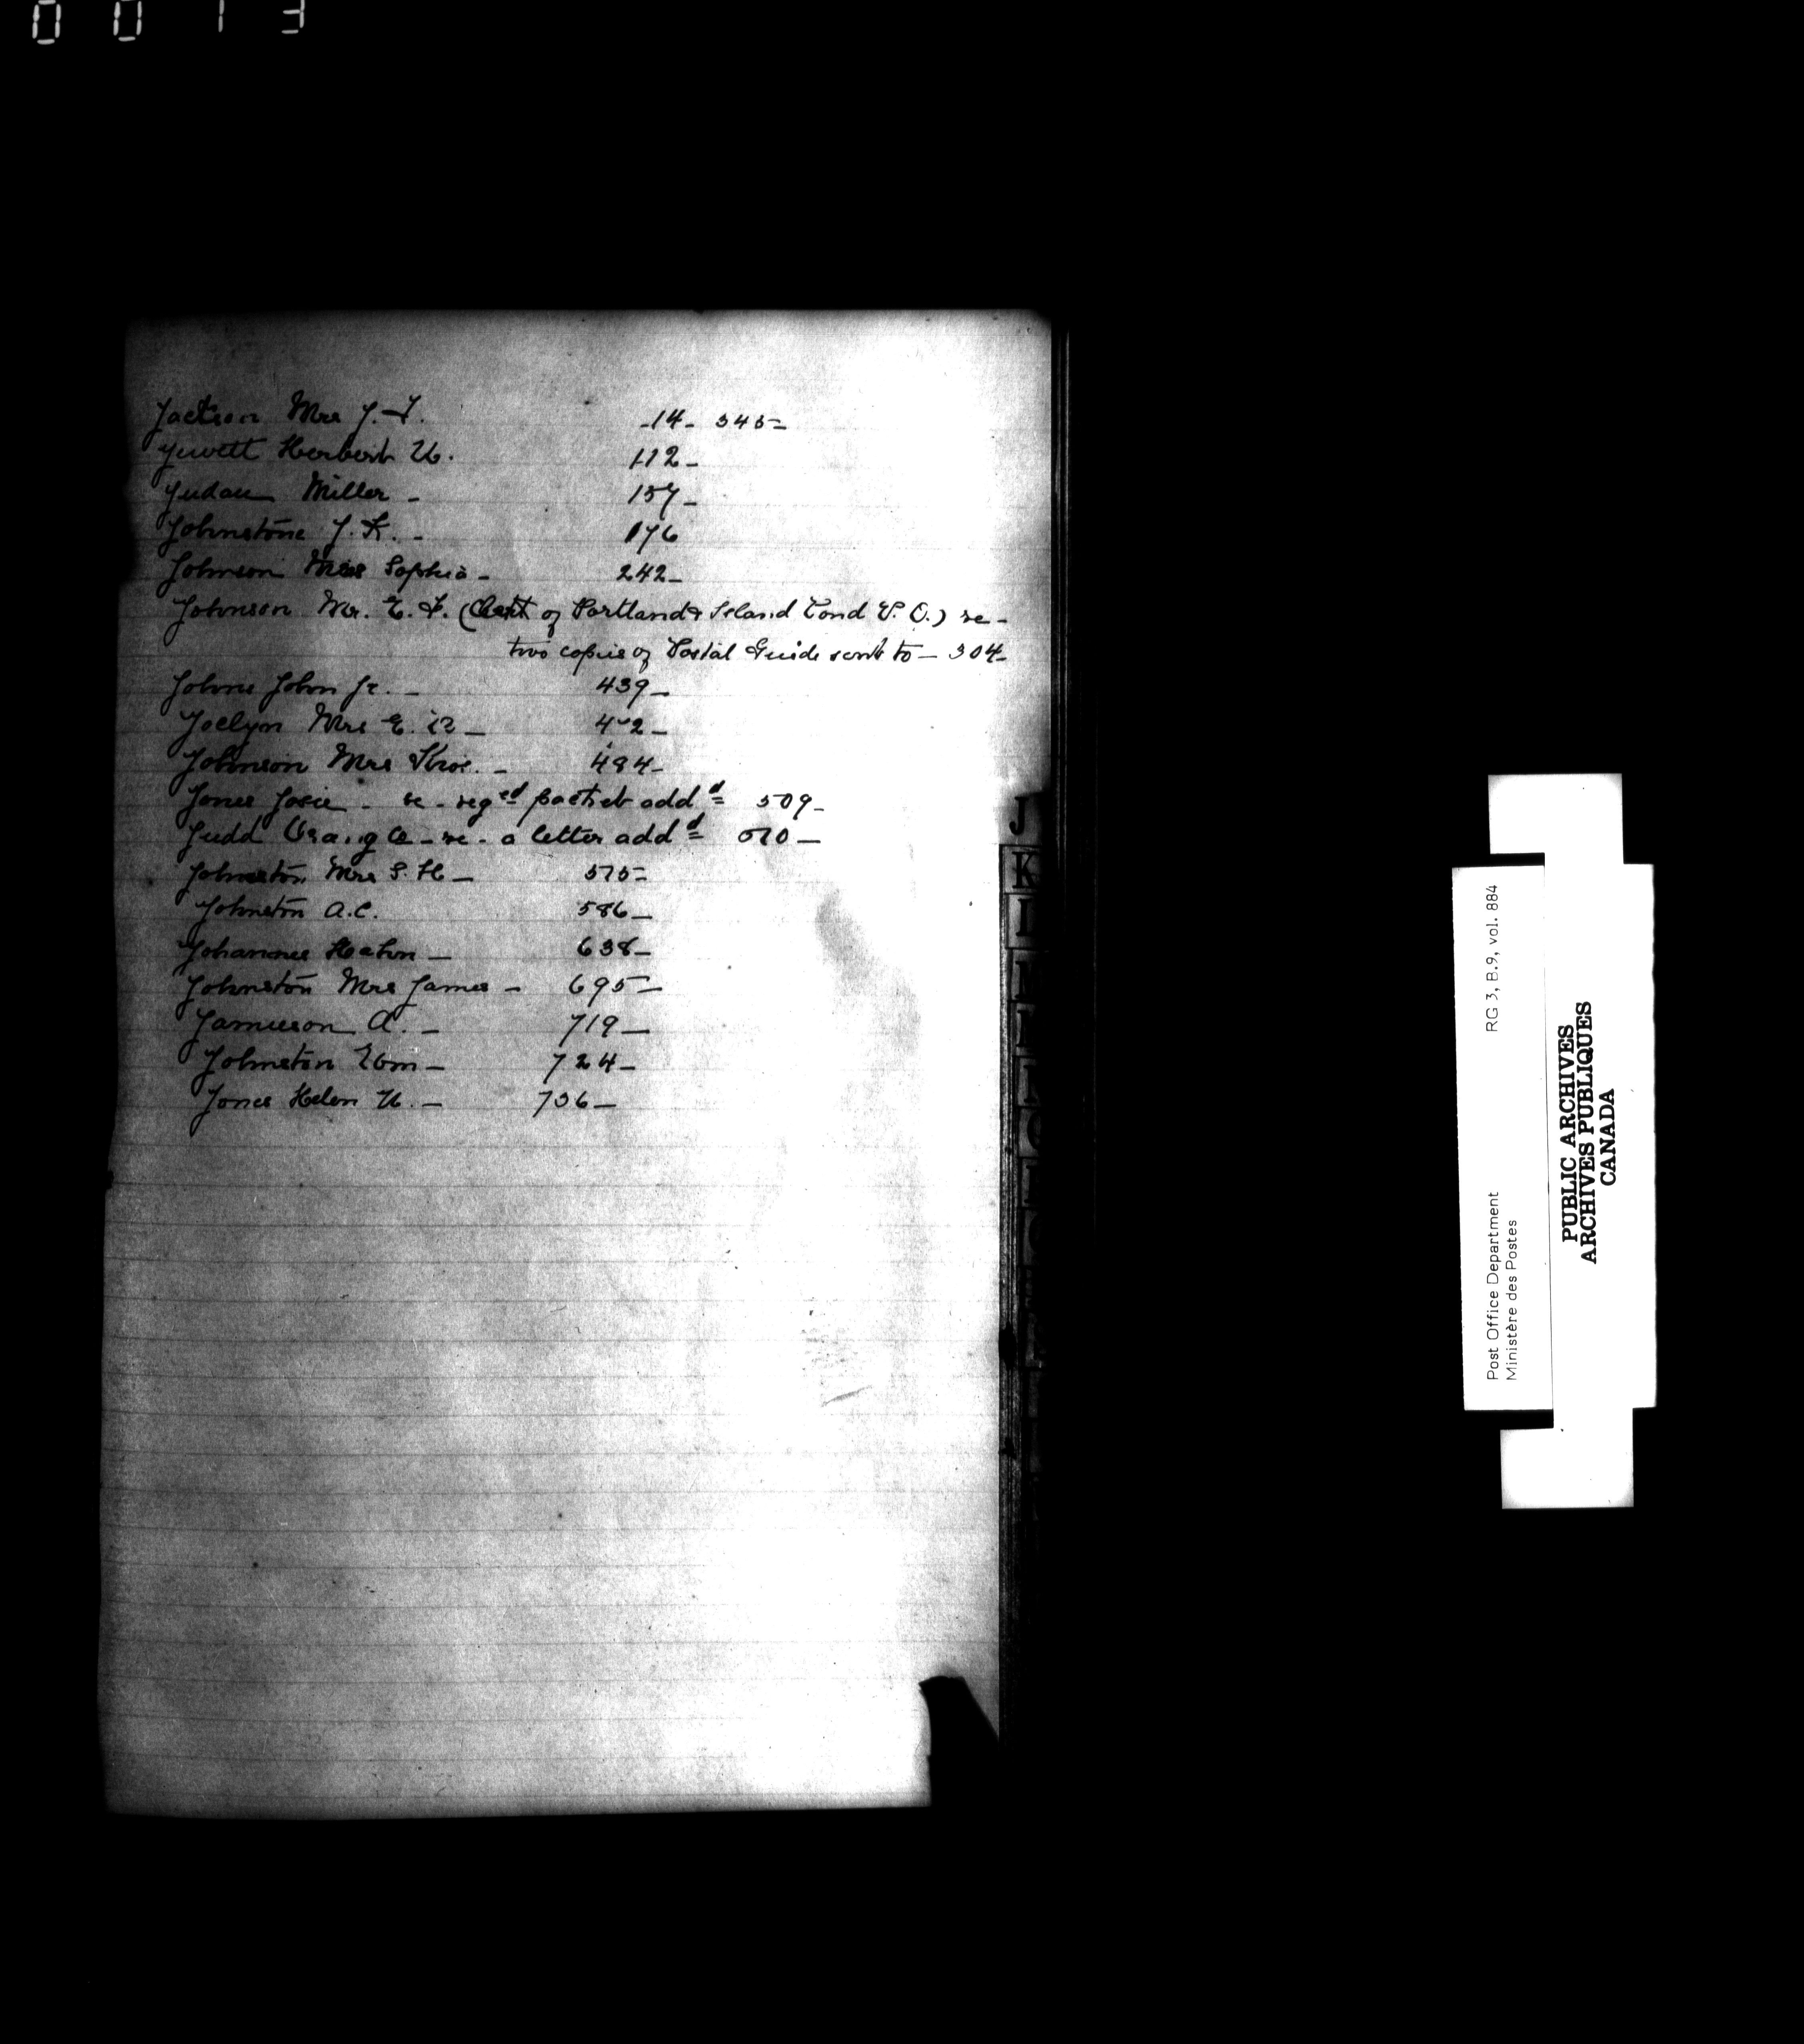 0013
Jackson Mrs J. T. -14- 345-
Jewett Herbert W. 112-
Judau Miller - 157-
Johnstone J. K. - 176
Johnson Miss Sophia - 242-
Johnson Mr. E. F. (Clerk of Portland & Island Pond P. O.) re-
two copies of Postal Guide sent to - 304-
Johns John Jr. - 439-
Joclyn Mrs E. - 4-2-
Johnson Mrs - 484-
Jones Josie - re - reged packet addd 509-
Judd - re - a letter addd 510-
Johnston Mrs S. H - 575-
Johnston A.C. 586-
Johannes Hahn - 638-
Johnston Mrs James - 695-
Jamieson A. - 719-
Johnston Wm - 724-
Jones Helen W. - 736-
J
K
L
M
Post Office Department RG 3, B.9, vol. 884
Ministère des Postes
PUBLIC ARCHIVES
ARCHIVES PUBLIQUES
CANADA